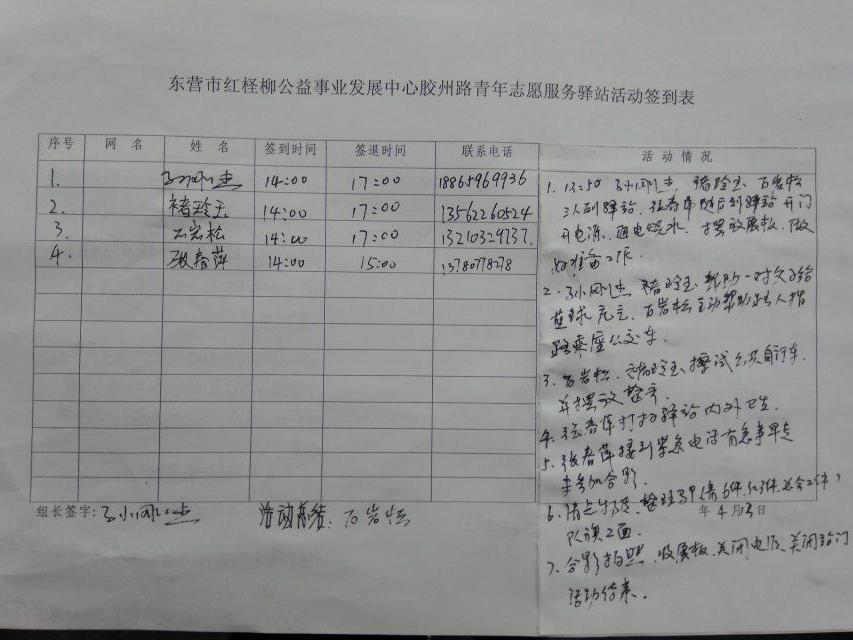 东营市红柽柳公益事业发展中心胶州路青年志愿服务驿站活动签到表
序号 网 名 姓 名 签到时间 签退时间 联系电话 活 动 情 况
1. 14:00 17:00 18865969936
2. 褚玲玉 14:00 17:00 13562260524
3. 石岩松 14:00 17:00 13210329737.
4. 张春萍 14:00 15:00 13780778278
1. 13:50 褚玲玉 石岩松
三人到驿站. 张春萍随后到驿站 开门
开电源. 通电烧水. 摆放展板. 做
好准备工作.
2. 褚玲玉 帮助一对父子给
篮球充气. 石岩松主动帮助 人指
路乘座公交车.
3. 石岩松. 褚玲玉、擦试公共自行车.
并摆放整齐.
4. 张春萍打扫驿站内外卫生.
5. 张春萍接到紧急电话有急事早走
未参加合影.
6. 清点 整理马甲 6件.
队旗2面.
7. 合影拍照. 收展板. 关闭电源、关闭站门
活动结束.
组长签字: 活动总结: 石岩松 年 4 月 13 日